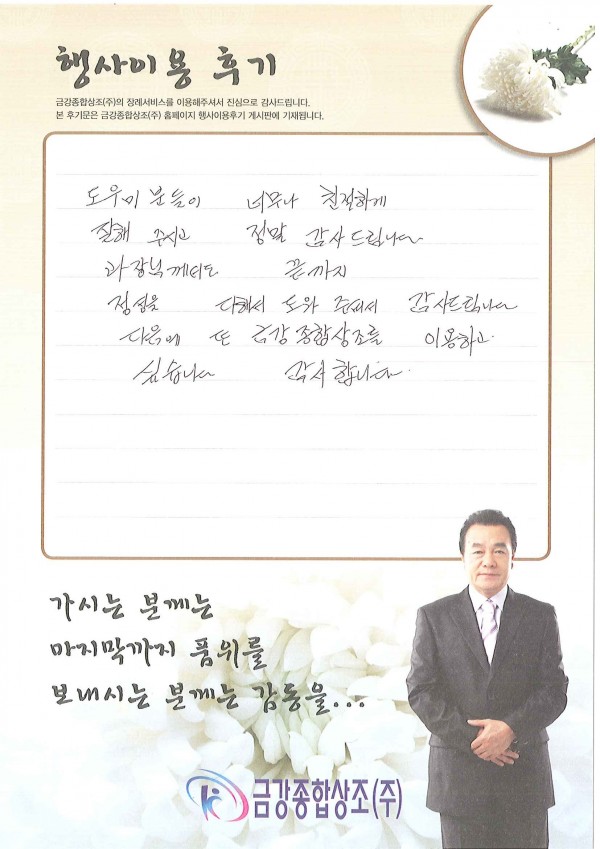 행사이용 후기
금강종합상조(주)의 장례서비스를 이용해주셔서 진심으로 감사드립니다.
본 후기문은 금강종합상조(주) 홈페이지 행사이용후기 게시판에 기재됩니다.
도우미 분들이 너무나 친절하게
잘해 주시고 정말 감사드립니다
과장님께서도 끝까지
정성을 다해서 도와 주셔서 감사드립니다
다음에 또 금강종합상조를 이용하고
싶습니다 감사합니다.
가시는 분께는
마지막까지 품위를
보내시는 분께는 감동을...
금강종합상조(주)